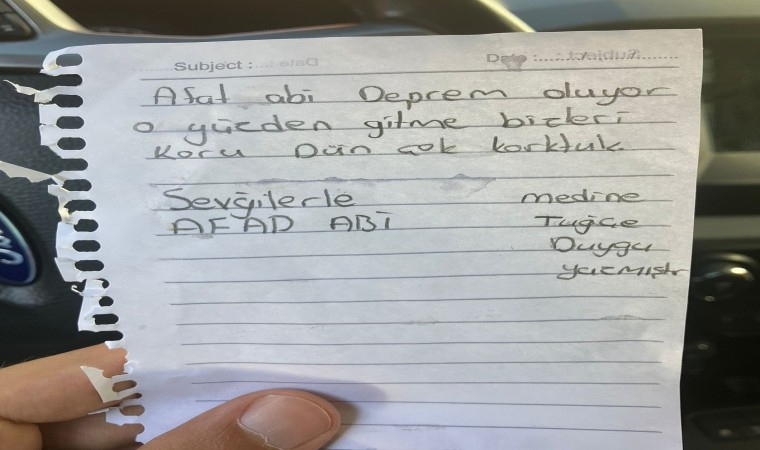 Subject :
Date :
Afat abi Deprem oluyor
o yüzden gitme bizleri
Koru Dün çok korktuk
Sevgilerle medine
AFAD ABİ Tuğçe
Duygu
yazmıştır